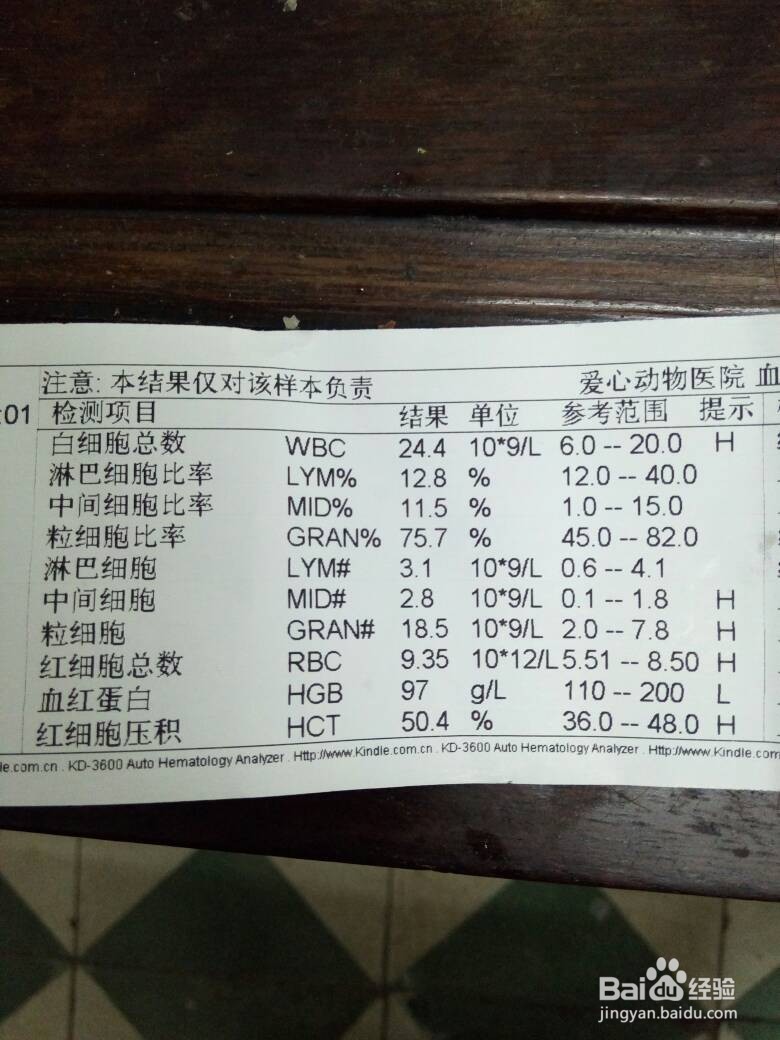 注意: 本结果仅对该样本负责 爱心动物医院 血
:01 检测项目 结果 单位 参考范围 提示
白细胞总数 WBC 24.4 10*9/L 6.0 -- 20.0 H
淋巴细胞比率 LYM% 12.8 % 12.0 -- 40.0
中间细胞比率 MID% 11.5 % 1.0 -- 15.0
粒细胞比率 GRAN% 75.7 % 45.0 -- 82.0
淋巴细胞 LYM# 3.1 10*9/L 0.6 -- 4.1
中间细胞 MID# 2.8 10*9/L 0.1 -- 1.8 H
粒细胞 GRAN# 18.5 10*9/L 2.0 -- 7.8 H
红细胞总数 RBC 9.35 10*12/L 5.51 -- 8.50 H
血红蛋白 HGB 97 g/L 110 -- 200 L
红细胞压积 HCT 50.4 % 36.0 -- 48.0 H
dle.com.cn . KD-3600 Auto Hematology Analyzer . Http://www.Kindle.com.cn . KD-3600 Auto Hematology Analyzer . Http://www.Kindle.com
Baidu经验
jingyan.baidu.com